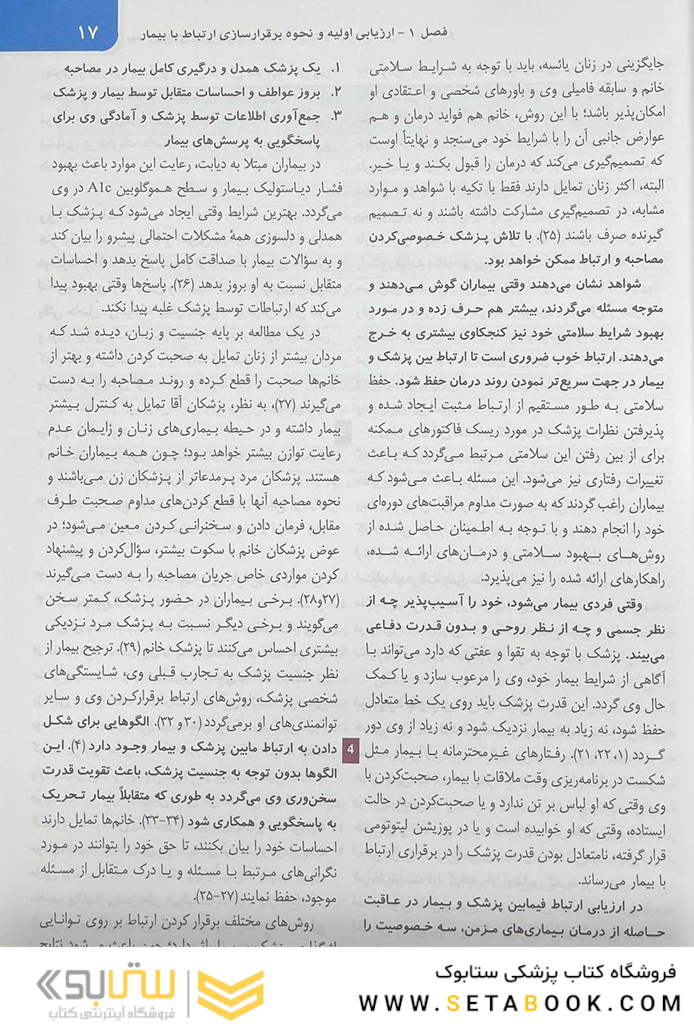 فصل ۱ - ارزیابی اولیه و نحوه برقرارسازی ارتباط با بیمار
۱۷
جایگزینی در زنان یائسه، باید با توجه به شرایط سلامتی
خانم و سابقه فامیلی وی و باورهای شخصی و اعتقادی او
امکان‌پذیر باشد؛ با این روش، خانم هم فواید درمان و هم
عوارض جانبی آن را با شرایط خود می‌سنجد و نهایتاً اوست
که تصمیم‌گیری می‌کند که درمان را قبول بکند و یا خیر.
البته، اکثر زنان تمایل دارند فقط با تکیه با شواهد و موارد
مشابه، در تصمیم‌گیری مشارکت داشته باشند و نه تصمیم
گیرنده صرف باشند (۲۵). با تلاش پزشک خصوصی‌کردن
مصاحبه و ارتباط ممکن خواهد بود.
شواهد نشان می‌دهند وقتی بیماران گوش می‌دهند و
متوجه مسئله می‌گردند، بیشتر هم حرف زده و در مورد
بهبود شرایط سلامتی خود نیز کنجکاوی بیشتری به خرج
می‌دهند. ارتباط خوب ضروری است تا ارتباط بین پزشک و
بیمار در جهت سریع‌تر نمودن روند درمان حفظ شود. حفظ
سلامتی به طور مستقیم از ارتباط مثبت ایجاد شده و
پذیرفتن نظرات پزشک در مورد ریسک فاکتورهای ممکنه
برای از بین رفتن این سلامتی مرتبط می‌گردد که باعث
تغییرات رفتاری نیز می‌شود. این مسئله باعث می‌شود که
بیماران راغب گردند که به صورت مداوم مراقبت‌های دوره‌ای
خود را انجام دهند و با توجه به اطمینان حاصل شده از
روش‌های بهبود سلامتی و درمان‌های ارائه شده،
راهکارهای ارائه شده را نیز می‌پذیرد.
وقتی فردی بیمار می‌شود، خود را آسیب‌پذیر چه از
نظر جسمی و چه از نظر روحی و بدون قدرت دفاعی
می‌بیند. پزشک با توجه به تقوا و عفتی که دارد می‌تواند با
آگاهی از شرایط بیمار خود، وی را مرعوب سازد و یا کمک
حال وی گردد. این قدرت پزشک باید روی یک خط متعادل
حفظ شود، نه زیاد به بیمار نزدیک شود و نه زیاد از وی دور
گردد (۱، ۲۲، ۲۱). رفتارهای غیرمحترمانه با بیمار مثل
شکست در برنامه‌ریزی وقت ملاقات با بیمار، صحبت‌کردن با
وی وقتی که او لباس بر تن ندارد و یا صحبت‌کردن در حالت
ایستاده، وقتی که او خوابیده است و یا در پوزیشن لیتوتومی
قرار گرفته، نامتعادل بودن قدرت پزشک را در برقراری ارتباط
با بیمار می‌رساند.
در ارزیابی ارتباط فیمابین پزشک و بیمار در عاقبت
حاصله از درمان بیماری‌های مزمن، سه خصوصیت را
۱. یک پزشک همدل و درگیری کامل بیمار در مصاحبه
۲. بروز عواطف و احساسات متقابل توسط بیمار و پزشک
۳. جمع‌آوری اطلاعات توسط پزشک و آمادگی وی برای
پاسخگویی به پرسش‌های بیمار
در بیماران مبتلا به دیابت، رعایت این موارد باعث بهبود
فشار دیاستولیک بیمار و سطح هموگلوبین A1c در وی
می‌گردد. بهترین شرایط وقتی ایجاد می‌شود که پزشک با
همدلی و دلسوزی همهٔ مشکلات احتمالی پیشرو را بیان کند
و به سؤالات بیمار با صداقت کامل پاسخ بدهد و احساسات
متقابل نسبت به او بروز بدهد (۲۶). پاسخ‌ها وقتی بهبود پیدا
می‌کند که ارتباطات توسط پزشک غلبه پیدا نکند.
در یک مطالعه بر پایه جنسیت و زبان، دیده شد که
مردان بیشتر از زنان تمایل به صحبت کردن داشته و بهتر از
خانم‌ها صحبت را قطع کرده و روند مصاحبه را به دست
می‌گیرند (۲۷)، به نظر، پزشکان آقا تمایل به کنترل بیشتر
بیمار داشته و در حیطه بیماری‌های زنان و زایمان عدم
رعایت توازن بیشتر خواهد بود؛ چون همه بیماران خانم
هستند. پزشکان مرد پرمدعاتر از پزشکان زن می‌باشند و
نحوه مصاحبه آنها با قطع کردن‌های مداوم صحبت طرف
مقابل، فرمان دادن و سخنرانی کردن معین می‌شود؛ در
عوض پزشکان خانم با سکوت بیشتر، سؤال‌کردن و پیشنهاد
کردن مواردی خاص جریان مصاحبه را به دست می‌گیرند
(۲۷و۲۸). برخی بیماران در حضور پزشک، کمتر سخن
می‌گویند و برخی دیگر نسبت به پزشک مرد نزدیکی
بیشتری احساس می‌کنند تا پزشک خانم (۲۹). ترجیح بیمار از
نظر جنسیت پزشک به تجارب قبلی وی، شایستگی‌های
شخصی پزشک، روش‌های ارتباط برقرارکردن وی و سایر
توانمندی‌های او برمی‌گردد (۳۰ و ۳۲). الگوهایی برای شکل
دادن به ارتباط مابین پزشک و بیمار وجود دارد (۴). این
4
الگوها بدون توجه به جنسیت پزشک، باعث تقویت قدرت
سخن‌وری وی می‌گردد به طوری که متقابلاً بیمار تحریک
به پاسخگویی و همکاری شود (۳۴-۳۳). خانم‌ها تمایل دارند
احساسات خود را بیان بکنند، تا حق خود را بتوانند در مورد
نگرانی‌های مرتبط با مسئله و یا درک متقابل از مسئله
موجود، حفظ نمایند (۲۷-۲۵).
روش‌های مختلف برقرار کردن ارتباط بر روی توانایی
فروشگاه کتاب پزشکی ستابوک
WWW.SETABOOK.COM
ستابوک
فروشگاه اینترنتی کتاب